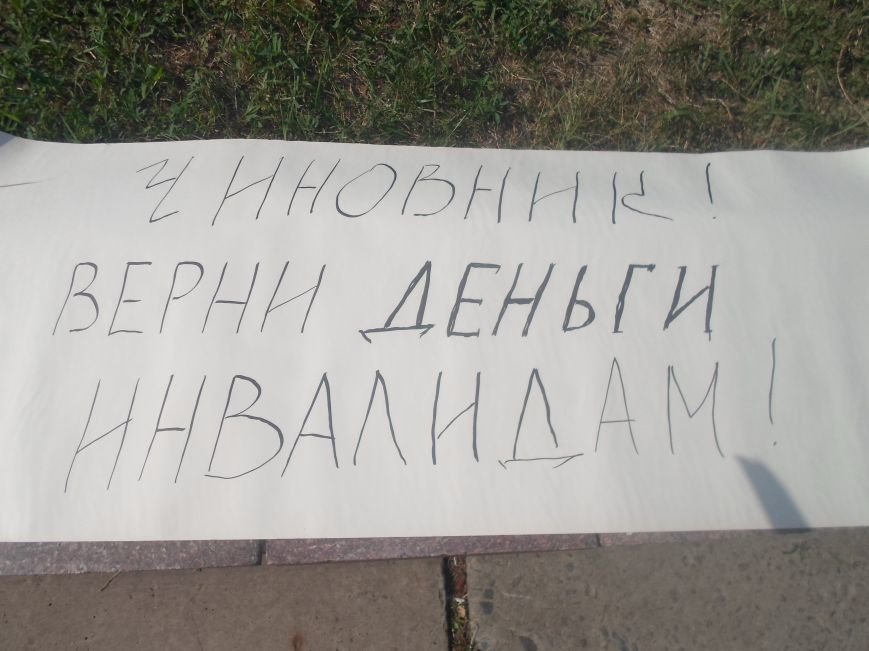 ЧИНОВНИК!
ВЕРНИ ДЕНЬГИ
ИНВАЛИДАМ!